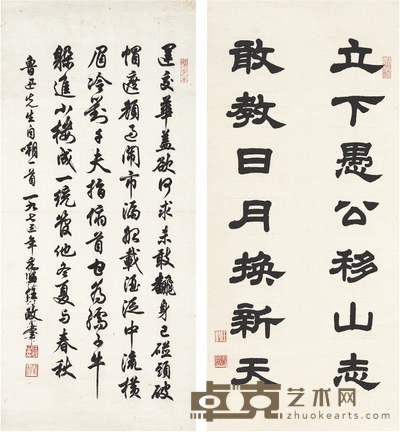 運交華蓋欲何求未敢翻身已碰頭破
帽遮顏過鬧市漏船載酒泛中流橫
眉冷對千夫指俯首甘為孺子牛
躲進小樓成一統管他冬夏與春秋
魯迅先生自嘲一首一九七三年
立下愚公移山志
敢教日月換新天
卓克艺术网
zhuokearts.com